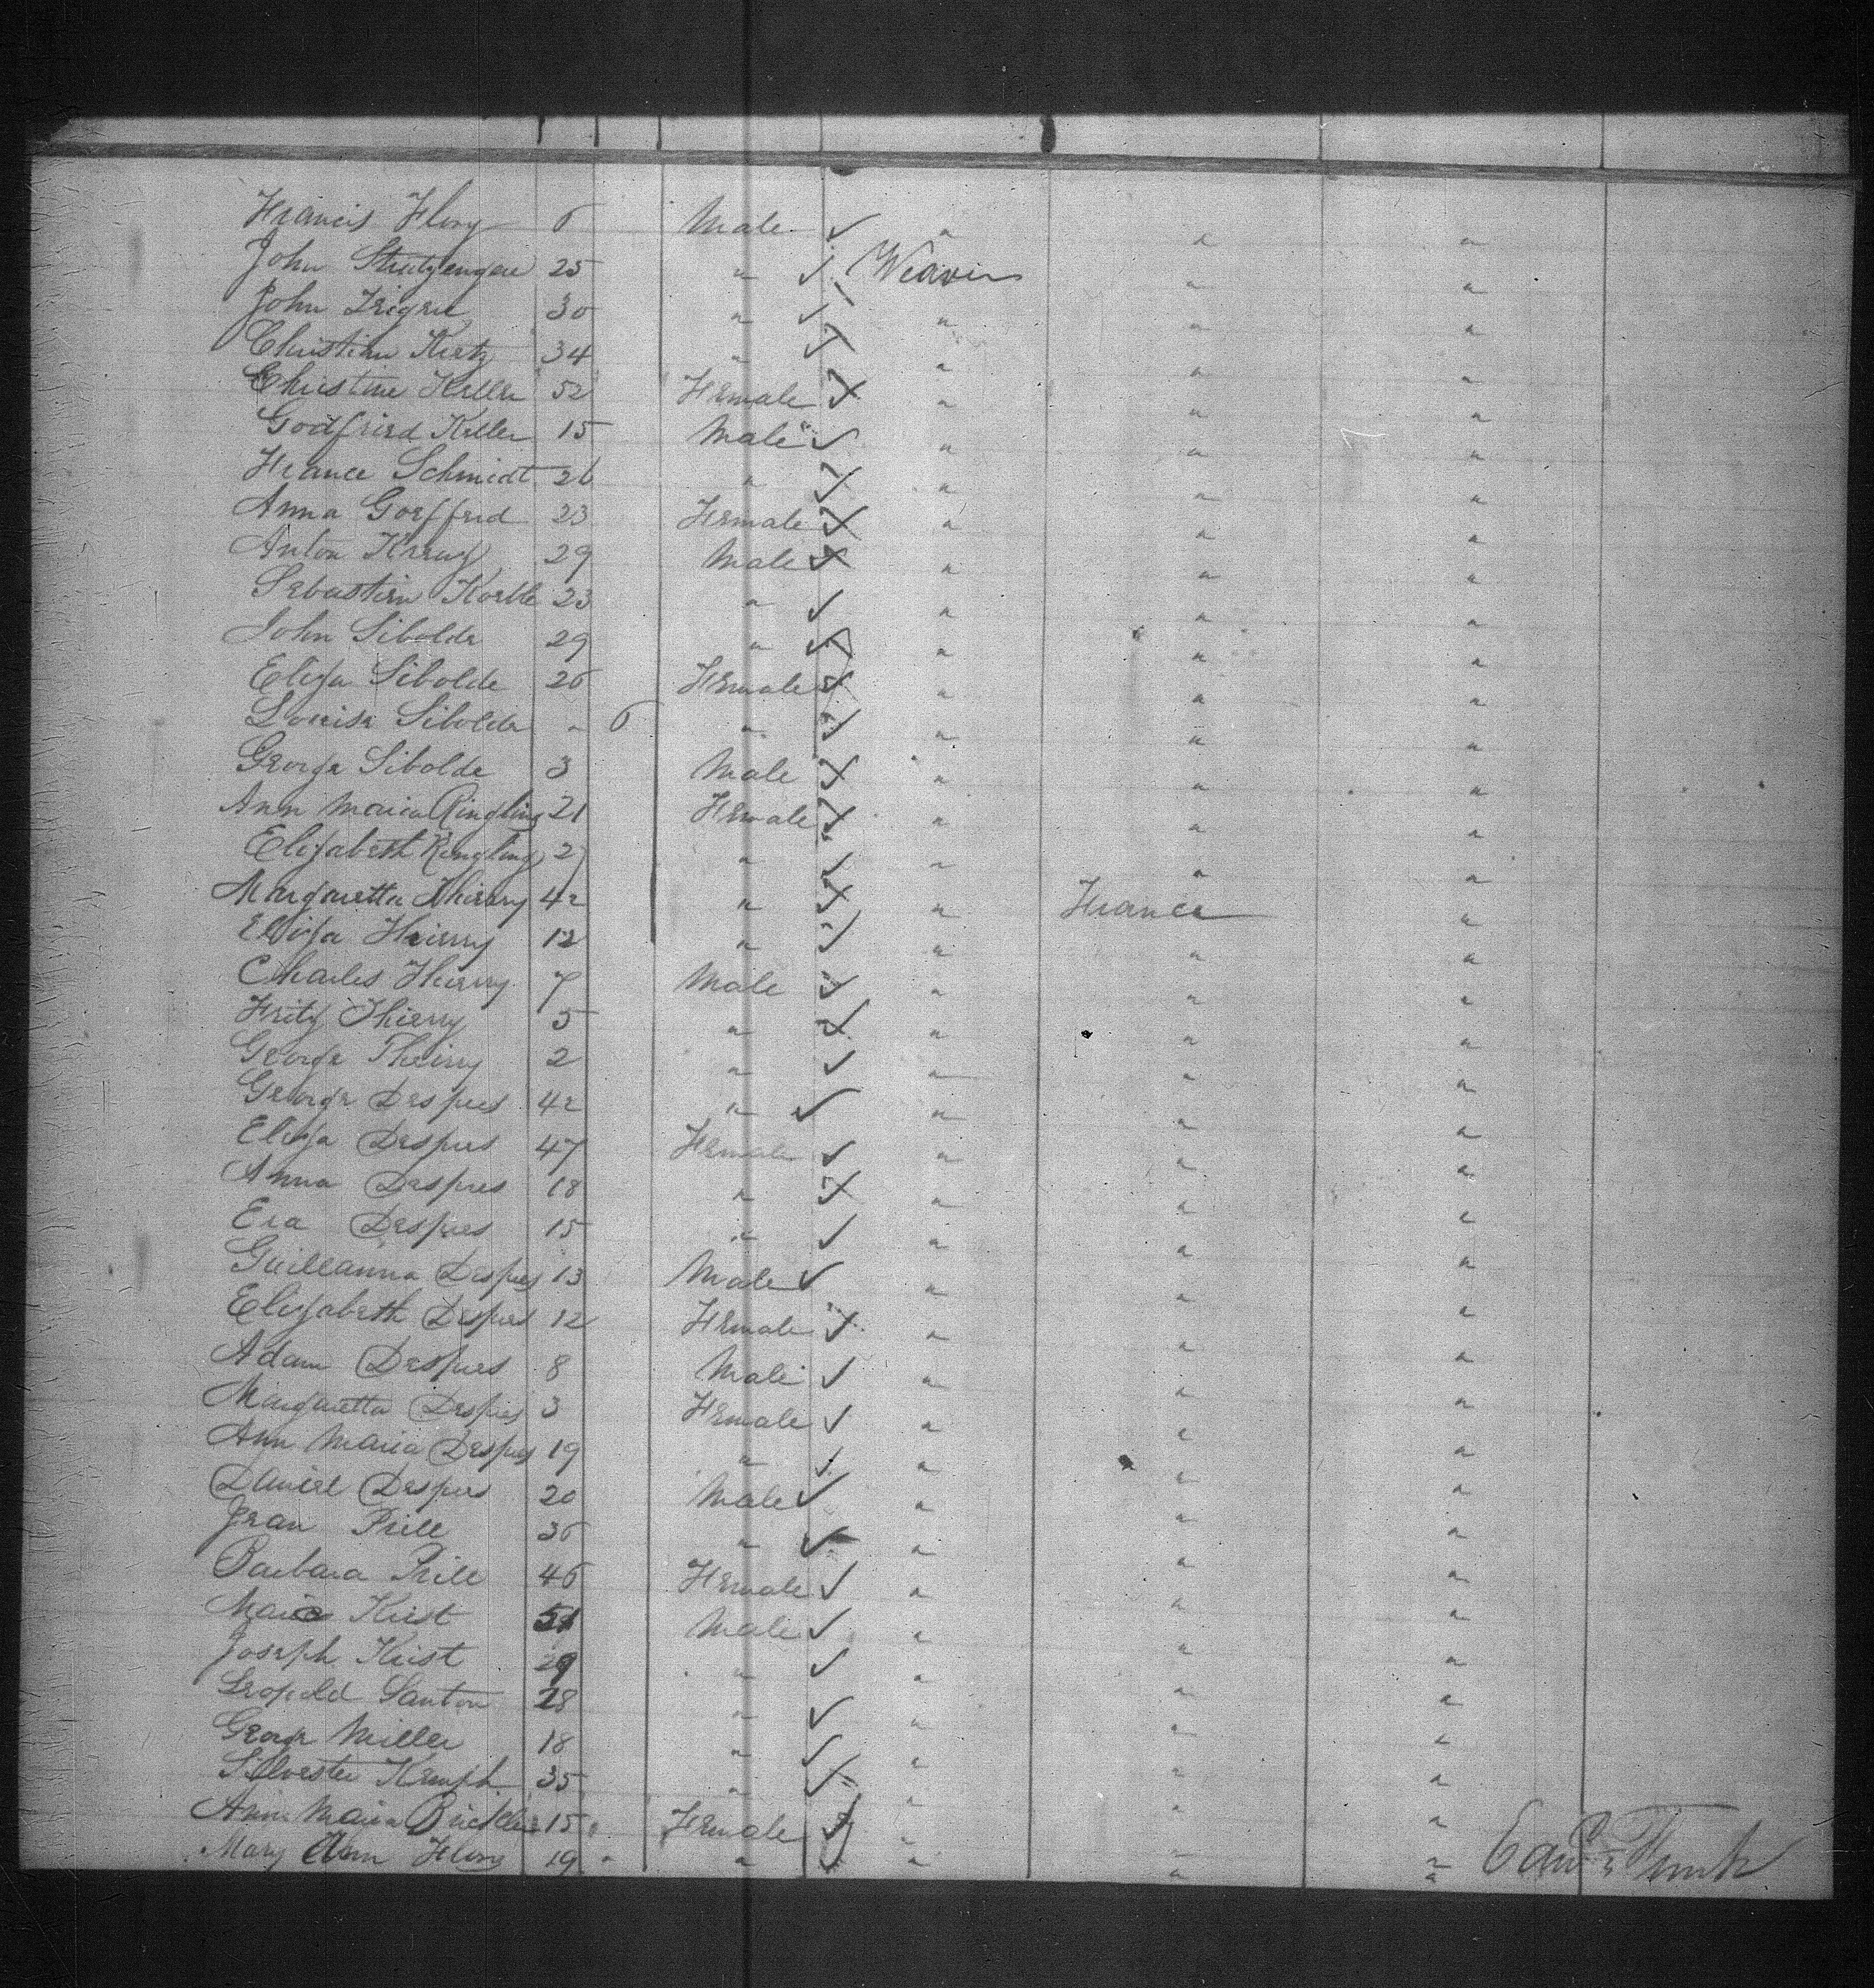 Francis Flory 6 Male ✓ " " "
John Stutzengae 25 " ✓ Weaver " "
John Zrigrae 30 " ✓ " " "
Christian Kretz 34 " ✓ " " "
Christine Keller 52 Female ✓ " " "
Godfried Keller 15 Male ✓ " " "
France Schmidt 26 " ✓ " " "
Anna Goeffred 23 Female ✓ " " "
Anton Kreuz 29 Male ✓ " " "
Sebastien Korble 23 " ✓ " " "
John Sibolde 29 " ✓ " " "
Eliza Sibolde 26 Female ✓ " " "
Louisa Sibolde " 6 " ✓ " " "
George Sibolde 3 Male ✓ " " "
Ann Maria Ringling 21 Female ✓ " " "
Elizabeth Ringling 27 " ✓ " " "
Margaretta Thierry 42 " ✓ " France "
Eliza Thierry 12 " ✓ " " "
Charles Thierry 7 Male ✓ " " "
Fritz Thierry 5 " ✓ " " "
George Theiry 2 " ✓ " " "
George Despres 42 " ✓ " " "
Eliza Despres 47 Female ✓ " " "
Anna Despres 18 " ✓ " " "
Eva Despres 15 " ✓ " " "
Guilleanna Despres 13 Male ✓ " " "
Elizabeth Despres 12 Female ✓ " " "
Adam Despres 8 Male ✓ " " "
Margaretta Despres 3 Female ✓ " " "
Ann Maria Despres 19 " ✓ " " "
Daniel Despres 20 Male ✓ " " "
Jean Prill 36 " ✓ " " "
Barbara Prill 46 Female ✓ " " "
Marc Kirst 51 Male ✓ " " "
Joseph Kirst 29 " ✓ " " "
Leopold Santon 28 " ✓ " " "
George Miller 18 " ✓ " " "
Silvester Kemph 35 " ✓ " " "
Ann Maria 15 Female ✓ " " "
Mary Ann Flory 19 " ✓ " " "